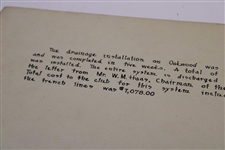 The drainage installation on Oakwood was
and was completed in five weeks. A total of
was installed. The entire system is discharged
the letter from Mr. W.M. Haas, Chairman of the
Total cost to the club for this system inclu
the trench liner was $7,078.00